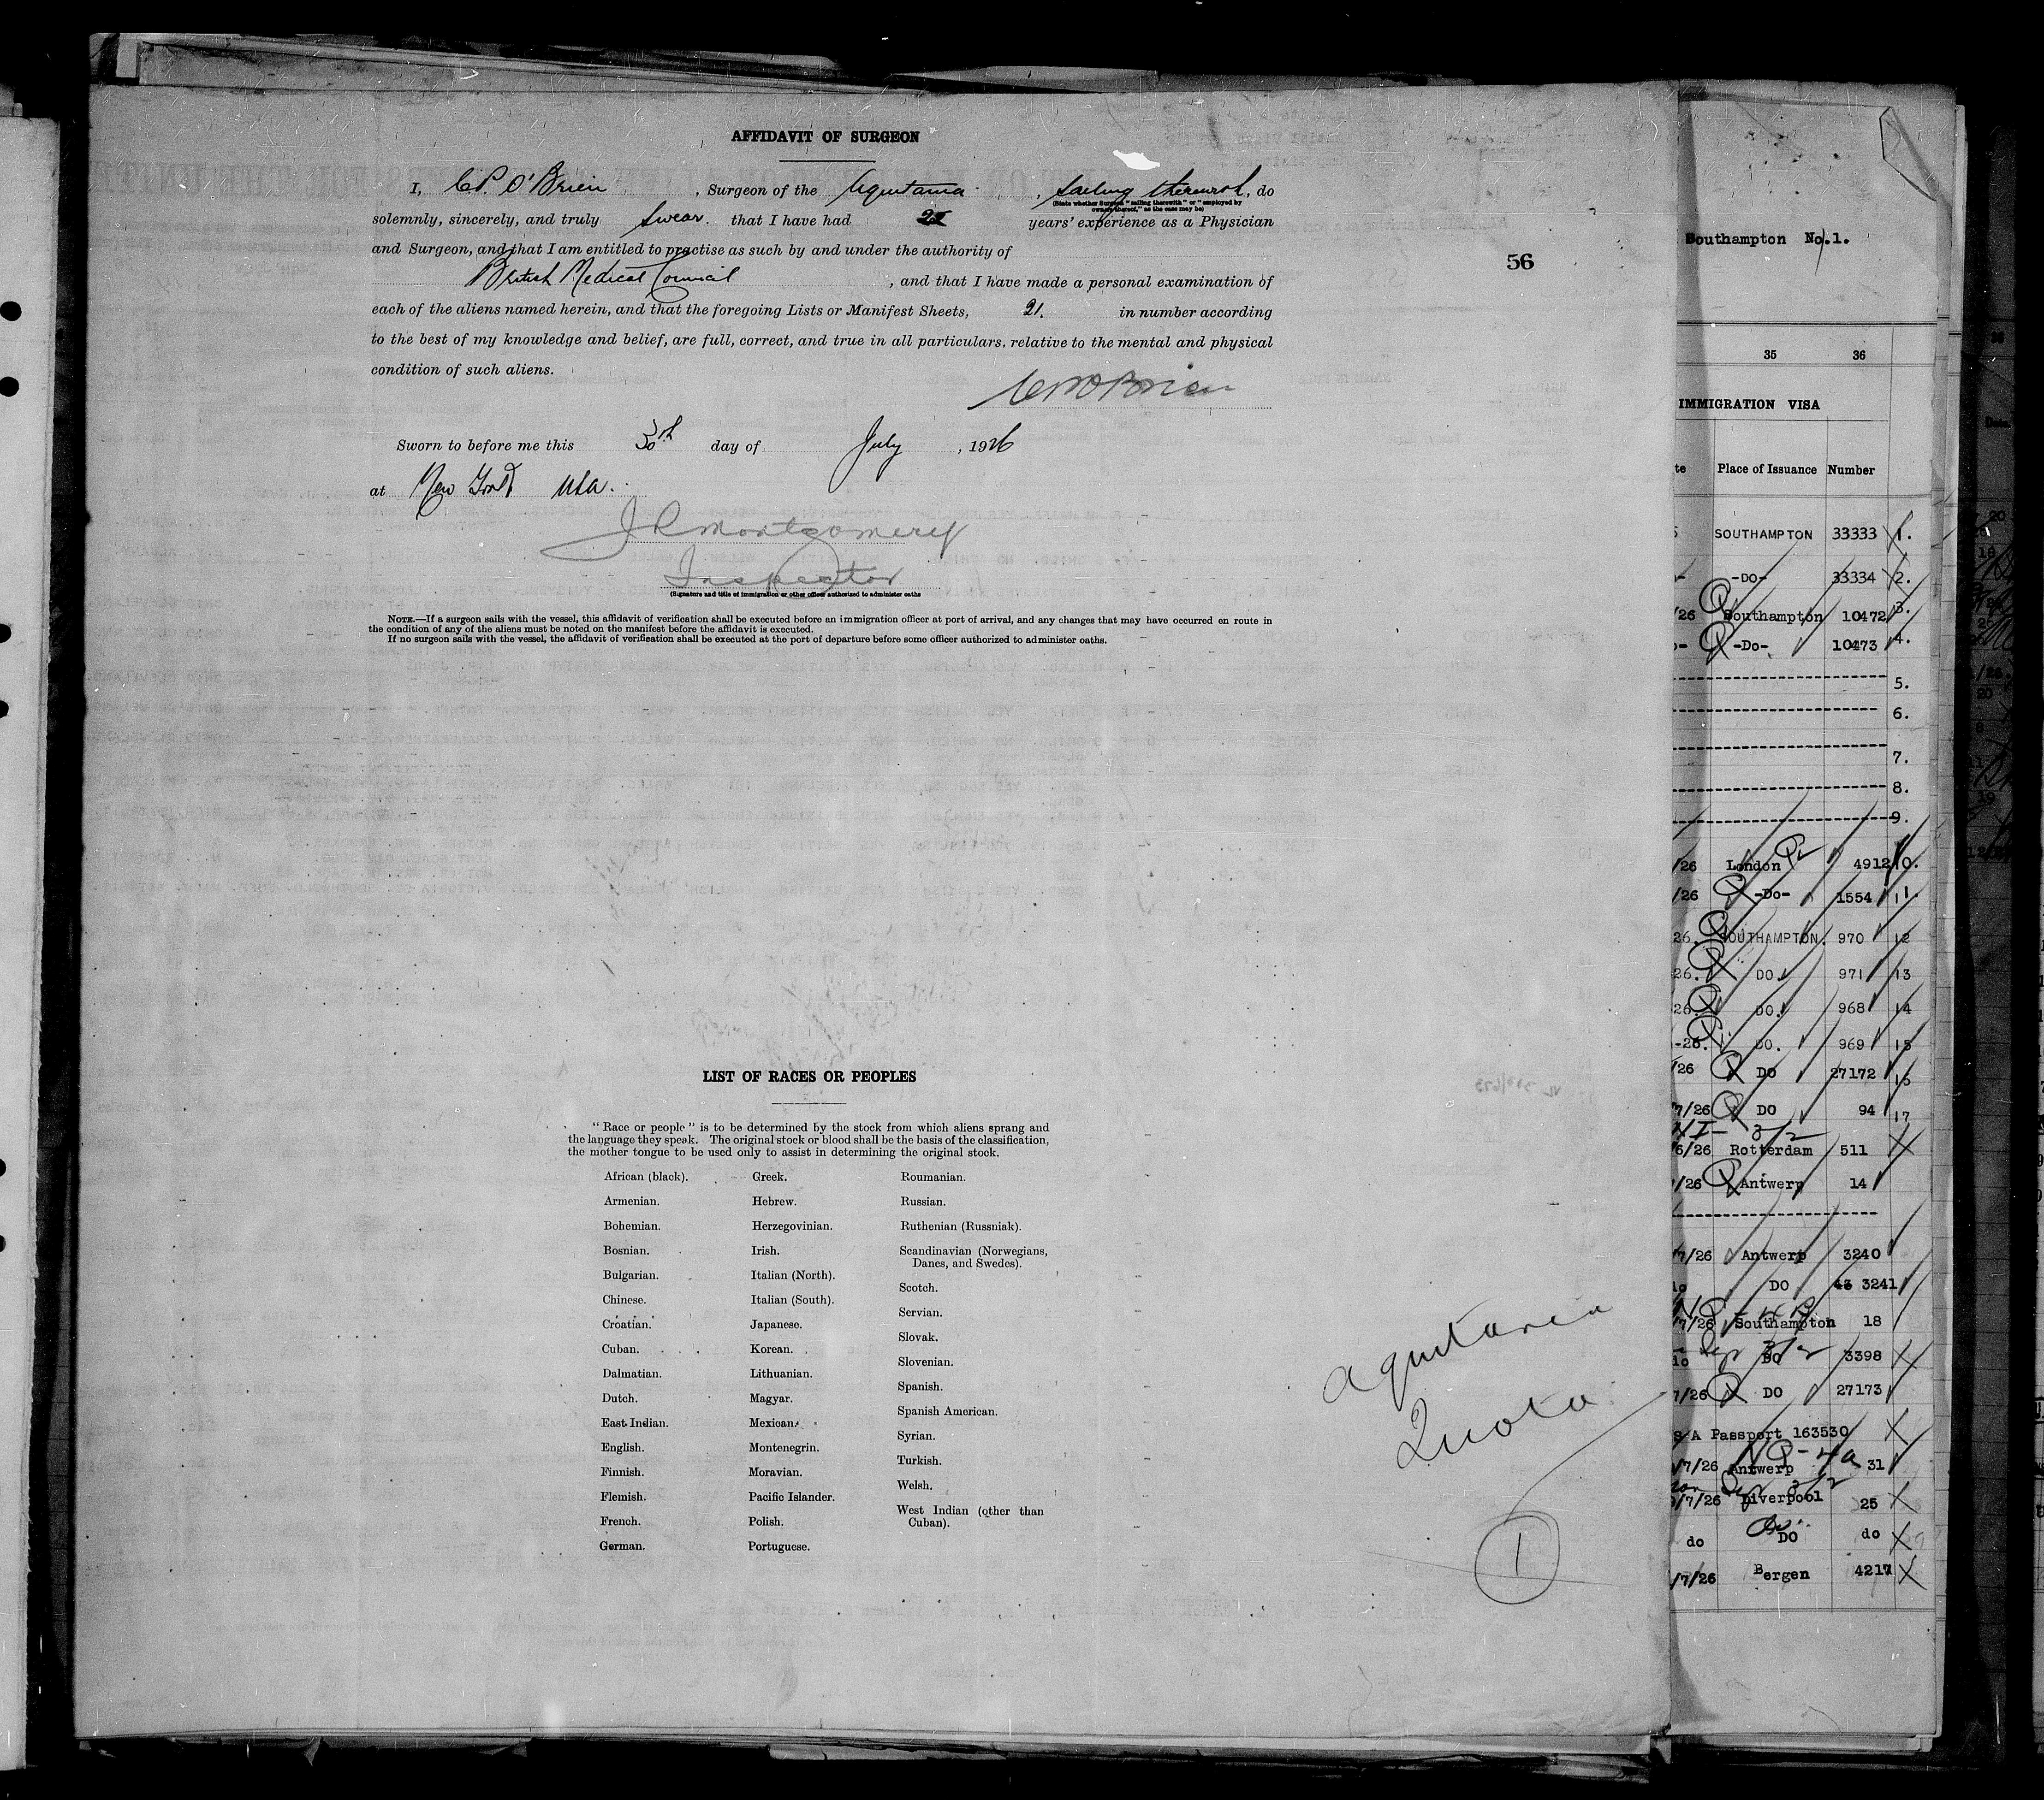 AFFIDAVIT OF SURGEON
I, C.P. O'Brien, Surgeon of the Aquitania, sailing therewith, do
(State whether Surgeon "sailing therewith" or "employed by
owners thereof," as the case may be)
solemnly, sincerely, and truly swear. that I have had years' experience as a Physician
and Surgeon, and that I am entitled to practise as such by and under the authority of
British Medical Council, and that I have made a personal examination of
each of the aliens named herein, and that the foregoing Lists or Manifest Sheets, 21. in number according
to the best of my knowledge and belief, are full, correct, and true in all particulars, relative to the mental and physical
condition of such aliens.
Sworn to before me this 30th day of July, 1926
at New York USA.
J R Montgomery
Inspector
(Signature and title of immigration or other officer authorized to administer oaths
NOTE.—If a surgeon sails with the vessel, this affidavit of verification shall be executed before an immigration officer at port of arrival, and any changes that may have occurred en route in
the condition of any of the aliens must be noted on the manifest before the affidavit is executed.
If no surgeon sails with the vessel, the affidavit of verification shall be executed at the port of departure before some officer authorized to administer oaths.
56
LIST OF RACES OR PEOPLES
"Race or people" is to be determined by the stock from which aliens sprang and
the language they speak. The original stock or blood shall be the basis of the classification,
the mother tongue to be used only to assist in determining the original stock.
African (black).
Armenian.
Bohemian.
Bosnian.
Bulgarian.
Chinese.
Croatian.
Cuban.
Dalmatian.
Dutch.
East Indian.
English.
Finnish.
Flemish.
French.
German.
Greek.
Hebrew.
Herzegovinian.
Irish.
Italian (North).
Italian (South).
Japanese.
Korean.
Lithuanian.
Magyar.
Mexican.
Montenegrin.
Moravian.
Pacific Islander.
Polish.
Portuguese.
Roumanian.
Russian.
Ruthenian (Russniak).
Scandinavian (Norwegians,
Danes, and Swedes).
Scotch.
Servian.
Slovak.
Slovenian.
Spanish.
Spanish American.
Syrian.
Turkish.
Welsh.
West Indian (other than
Cuban).
Aquitania
Quota
1
Southampton No.1.
35 36
IMMIGRATION VISA
Place of Issuance Number
SOUTHAMPTON 33333 1.
-DO- 33334 2.
/26 Southampton 10472 3.
-Do- 10473 4.
5.
6.
7.
8.
9.
/26 London 4912 10.
/26 -Do- 1554 11.
26. SOUTHAMPTON. 970 12
26. DO. 971 13
26. DO. 968 14
-26. DO. 969 15
/26 DO 27172 16
7/26 DO 94 17
6/26 Rotterdam 511
/26 Antwerp 14
7/26 Antwerp 3240
DO 3241
7/26 Southampton 18
DO 3398
7/26 DO 27173
S A Passport 163530
/7/26 Antwerp 31
/7/26 Liverpool 25
do DO do
/7/26 Bergen 4217